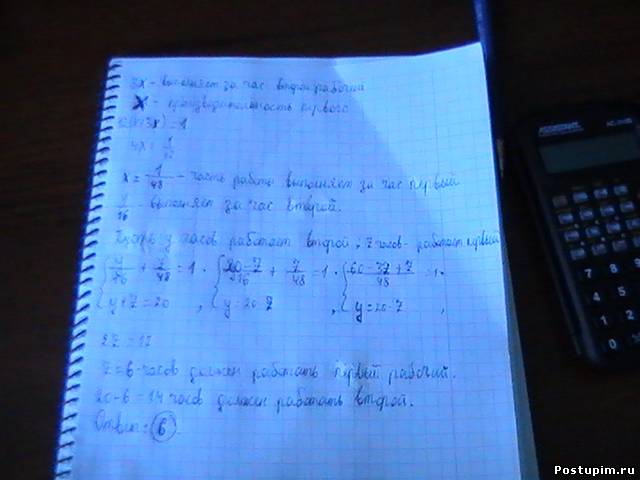 3x - выполняет за час второй рабочий
x - производительность первого
12(x+3x) = 1
4x = 1/12
x = 1/48 - часть работы выполняет за час первый
1/16 - выполняет за час второй.
Пусть y часов работает второй, z часов - работает первый
{ y/16 + z/48 = 1, { 20-z/16 + z/48 = 1, { 60-3z+z/48 = 1,
y+z = 20, y = 20-z, y = 20-z,
2z = 12
z = 6 часов должен работать первый рабочий.
20-6 = 14 часов должен работать второй.
Ответ: 6
7 8
4 5
1 2
0
Postupim.ru